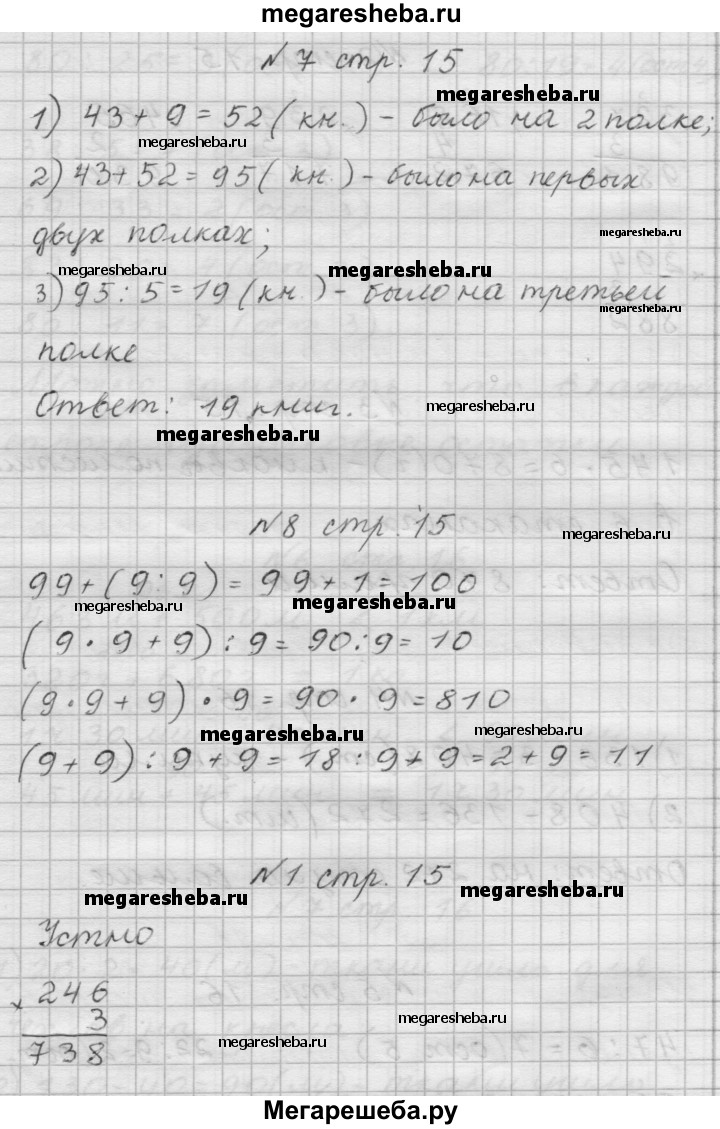 megaresheba.ru
№7 стр. 15
megaresheba.ru
1) 43 + 9 = 52 ( кн. ) - было на 2 полке;
megaresheba.ru
2) 43 + 52 = 95 ( кн. ) - было на первых
двух полках;
megaresheba.ru
megaresheba.ru
megaresheba.ru
3) 95 : 5 = 19 ( кн. ) - было на третьей
megaresheba.ru
полке
Ответ: 19 книг.
megaresheba.ru
megaresheba.ru
№8 стр. 15
megaresheba.ru
99 + ( 9 : 9 ) = 99 + 1 = 100
megaresheba.ru
megaresheba.ru
( 9 · 9 + 9 ) : 9 = 90 : 9 = 10
( 9 · 9 + 9 ) · 9 = 90 · 9 = 810
megaresheba.ru
megaresheba.ru
( 9 + 9 ) : 9 + 9 = 18 : 9 + 9 = 2 + 9 = 11
№1 стр. 15
megaresheba.ru
megaresheba.ru
Устно
× 246
3
738
megaresheba.ru
megaresheba.ru
Мегарешеба.ру